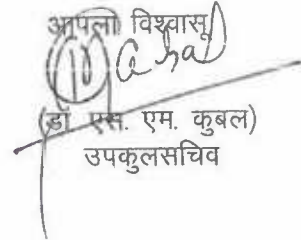 आपला विश्वासू
(डॉ एस. एम. कुबल)
उपकुलसचिव